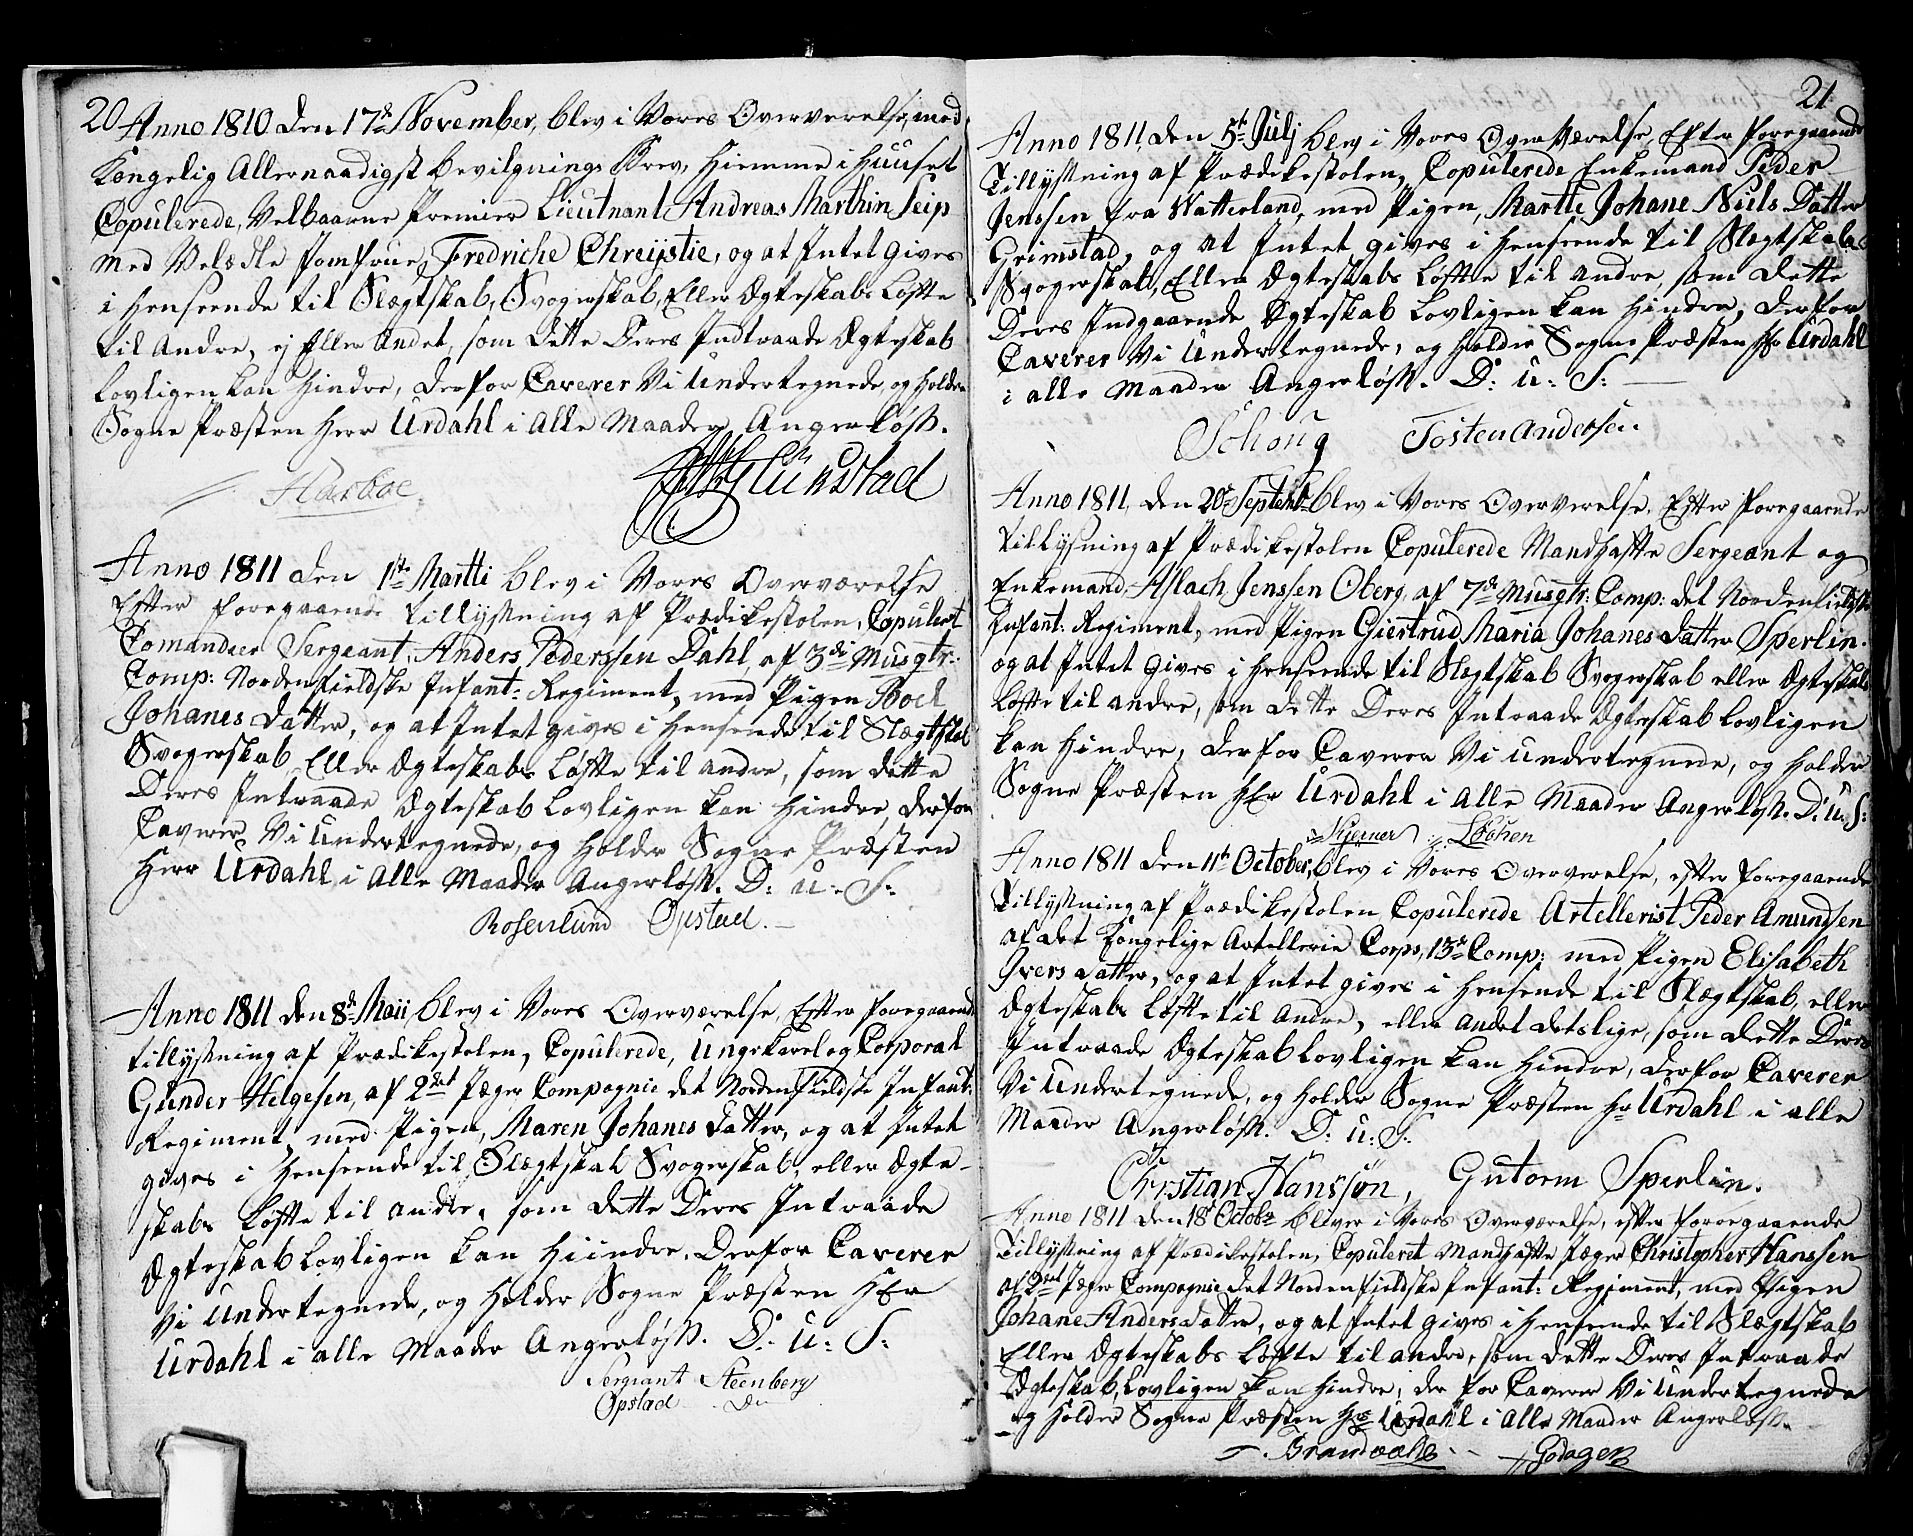 20
Anno 1810 den 17de November, blev i Vores Oververelse, med
Kongelig Allernaadigst bevilgnings Brev, Hiemme i Huuset
Copulerede, Velbaarne Premier Lieutnant Andreas Marthin Seip
med Velædle Jomfrue, Fredriche Chreystie, og at Intet gives
i Henseende til Slægtskab, Svogerskab, Eller Ægteskabs Løfte
til Andre, ej Eller Andet, som dette Deres Indtraade Ægteskab
Lovligen kan Hindre, derfor Caverer Vi Undertegnede, og holder
Sogne Præsten Herr Urdahl i Alle Maader Angerløst.
Harboe Glückstad
Anno 1811 den 1ste Martti blev i Vores Overværelse
Efter foregaaende tillystning af Prædikestolen, Copulert
Comandeer Sergeant, Anders Pederssen Dahl, af 3die Musqtr:
Comp: Nordenfieldske Infant: Regiment, med Pigen Boel
Johanes datter, og at Intet gives i Henseende til Slægtskab
Svogerskab Eller Ægteskabs Løfte til andre, som dette
Deres Intraade Ægteskab Lovligen kan Hindre, derfor
Caverer Vi Undertegnede, og holder Sogne Præsten
Herr Urdahl i Alle Maader Angerløst. D: u: S:
Rosenlund Opstad.
Anno 1811 den 8de Maii blev i Vores Overværelse, Efter foregaaende
tillystning af Prædikestolen, Copulerede, Ungekarl og Corporal
Gunder Helgesen, af 2det Jæger Compagnie det Nordenfieldske Infant:
Regiment, med Pigen, Maren Johanes datter, og at Intet
gives i Henseende til Slægtskab Svogerskab, eller Ægte-
skabs Løfte til andre, som dette Deres Intraade
Ægteskab Lovligen kan Hiindre, Derfor Caverer
Vi Undertegnede, og Holder Sogne Præsten Herr
Urdahl i alle Maader Angerløst. D: u: S:
Sergiant Steenberg
Opstad
21
Anno 1811, den 5te Julj blev i Vores Overværelse, Efter foregaaende
Tillystning af Prædikestolen, Copulerede Enkemand Peder
Jenssen fra Vatterland, med Pigen, Marthe Johane Niels Datter
Grimstad, og at Intet gives i Henseende til Slægtskabs
Svogerskab, Eller Ægteskabs Løfte til andre, som dette
Deres Indgaaende Ægteskab Lovligen kan Hindre, derfor
Caverer Vi Undertegnede, og Holder Sogne Præsten Hr Urdahl
i alle Maader Angerløst. D: u: S:
Schoug Tosten Andersen
Anno 1811, den 20de Septembr blev i Vores Oververelse, Efter foregaaende
tillysning af Prædikestolen Copulerede Mandhafte Sergeant og
Enkemand, Aslach Jenssen Oberg, af 7de Musqtr: Comp: det Nordenfieldske
Infant: Regiment, med Pigen Giertrud Maria Johanes datter Sperlin.
og at Intet gives i Henseende til Slægtskab Svogerskab eller Ægteskabs
Løfte til andre, som dette Deres Intraade Ægteskab Lovligen
kan Hindre, derfor Caverer Vi Undertegnede, og Holder
Sogne Præsten Herr Urdahl i Alle Maader Angerløst. D: u: S:
Lochen
Anno 1811 den 11te October, blev i Vores Oververelse, efter foregaaende
Tillystning af Prædikestolen, Copulerede Artellerist Peder Amundsen
af det Kongelige Artellerie Corps, 13de Comp: med Pigen Elisabeth
Ivers datter, og at Intet gives i Henseende til Slægtskab, eller
Ægteskabs Løfte til Andre, eller andet detslige, som dette Deres
Intraade Ægteskab Lovligen kan Hindre, derfor Caverer
Vi Undertegnede, og holder Sogne Præsten Hr Urdahl i alle
Maader Angerløst. D: u: S:
Christian Hanssøn, Gutorm Sperlin.
Anno 1811 den 18de Octobr bliver i Vores Overværelse, efter foregaaende
Tillystning af Prædikestolen, Copuleret Mandhafte Jæger Christopher Hanssen
af 2det Jæger Compagnie det Nordenfieldske Infant: Regiment, med Pigen
Johane Anders datter, og at Intet gives i Henseende til Slægtskab
Eller Ægteskabs Løfte til andre, som dette Deres Intraade
Ægteskab, Lovligen kan Hindre, der for Caverer Vi Undertegnede
og Holder Sogne Præsten Hr Urdahl i Alle Maader Angerløst.
Brandvold Godager